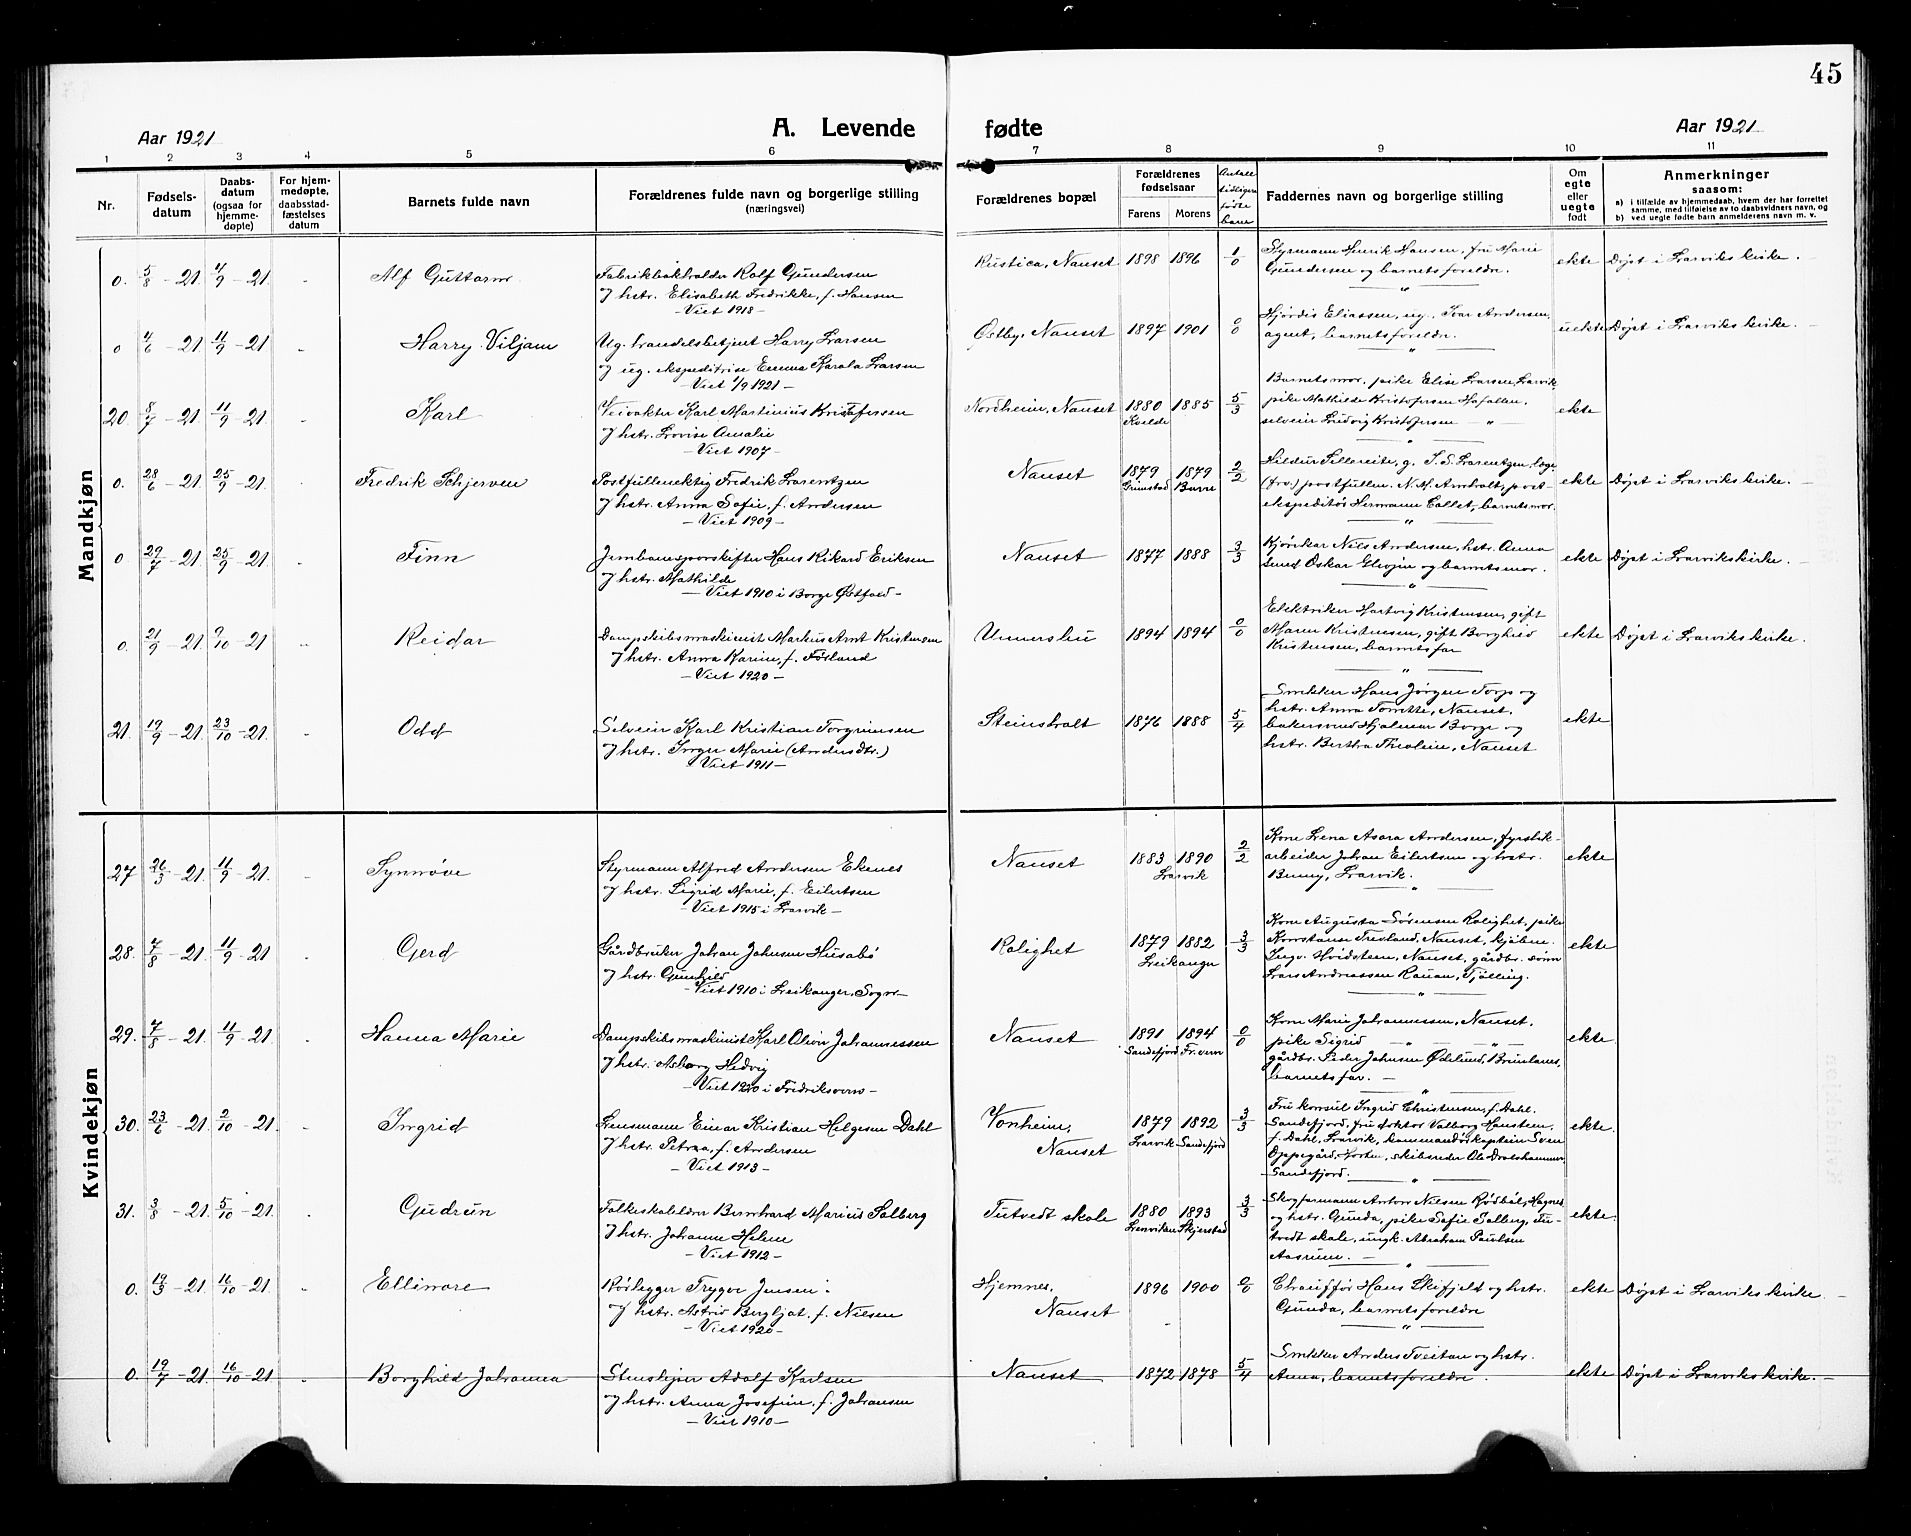 45
Aar 1921
A. Levende fødte
Aar 1921
1 2 3 4 5 6 7 8 9 10 11
Nr.
Fødsels-
datum
Daabs-
datum
(ogsaa for
hjemme-
døpte)
For hjem-
medøpte,
daabsstad-
fæstelses
datum
Barnets fulde navn
Forældrenes fulde navn og borgerlige stilling
(næringsvei)
Forældrenes bopæl
Forældrenes
fødselsaar
Farens Morens
Antall
tidligere
fødte
barn
Faddernes navn og borgerlige stilling
Om
egte
eller
uegte
født
Anmerkninger
saasom:
a) i tilfælde av hjemmedaab, hvem der har forrettet
samme, med tilføielse av to daabsvidners navn, og
b) ved uegte fødte barn anmelderens navn m. v.
Mandkjøn
0. 5/8 - 21. 4/9 - 21. Alf Guttorm
Fabrikbokholder Rolf Gundersen
og hstr. Elisabeth Fredrikke, f. Hansen
- Viet 1918 -
Rustica, Nanset 1898 1896 1/0
Styrmann Henrik Hansen, fru Marie
Gundersen og barnets foreldre.
ekte Døpt i Larviks kirke.
0 4/6 - 21. 11/9 - 21 Harry Viljam
Ug. handelsbetjent Harry Larsen
og ug. ekspeditrise Emma Karola Larsen
- Viet 1/9 1921 -
Østby, Nanset 1897 1901 0/0
Hjørdis Eliassen, ug. Ivar Andersen,
agent, barnets foreldre.
uekte Døpt i Larviks kirke.
20. 8/7 - 21. 11/9 - 21. Karl
Veivokter Karl Martinius Kristofersen
og hstr. Lovise Amalie
- Viet 1907 -
Nordheim, Nanset 1880 1885 5/3
Kvelde
Barnets mor, pike Elise Larsen, Larvik
pike Mathilde Kristofersen
selveier Ludvig Kristofersen - " -
ekte
0. 28/6 - 21. 25/9 - 21. Fredrik Schjerven
Postfullmektig Fredrik Lorentzen
og hstr. Anna Sofie, f. Andersen
- Viet 1909 -
Nanset 1879 1879 2/2
Grimstad Borre
(frv.) postfullm. N. M. Amholt, post-
ekspeditør Hermann Collet, barnets mor.
ekte Døpt i Larviks kirke. -
0 29/7 - 21. 25/9 - 21. Finn
Jernbanesporskifter Hans Rikard Eriksen
og hstr. Mathilde
- Viet 1910 i Borge Østfold -
Nanset 1877 1888 3/3
Kjørekar Niels Andersen, hstr. Anna
smed Oskar og barnets mor.
ekte Døpt i Larviks kirke. -
0. 21/9 - 21. 9/10 - 21 Reidar
Dampskibsmaskinist Markus Arnt Kristensen
og hstr. Anna Karine, f. Førland
- Viet 1920 -
Unnerslie 1894 1894 0/0
Elektriker Hartvig Kristensen, gift
Maren Kristensen, gift Borghild
Kristensen, barnets far
ekte Døpt i Larviks kirke.
21. 19/9 - 21. 23/10 - 21. Odd
Selveier Karl Kristian Torgrimsen
og hstr. Inger Marie (Andersdtr.)
- Viet 1911 -
Steinsholt 1876 1888 5/4
Snekker Hans Jørgen Torp og
hstr. Anna Tomette, Nanset,
bakersvend Hjalmar Borge og
hstr. Bertha Theoline, Nanset
ekte
Kvindekjøn
27 26/3 - 21. 11/9 - 21. Synnøve
Styrmann Alfred Andersen Ekenes
og hstr. Sigrid Marie, f. Eilertsen
- Viet 1915 i Larvik -
Nanset 1883 1890 2/2
Larvik
Kone Lena Asora Andersen, fyrstik-
arbeider Johan Eilertsen og hstr.
Benny, Larvik.
ekte
28. 7/8 - 21. 11/9 - 21 Gerd
Gårdbruker Johan Johnsen Husabø
og hstr. Gunhild
- Viet 1910 i Leikanger, Sogn -
Rolighet 1879 1882 3/3
Leikanger
Kone Augusta Sørensen Rolighet, pike
Konstanse Treoland, Nanset, kjøbm.
Ingv. Hvidsteen, Nanset, gårdbr. sønn
Lars Andreassen Rauan, Tjølling.
ekte
29. 7/8 - 21. 11/9 - 21. Hanna Marie
Dampskibsmaskinist Karl Oliver Johannessen
og hstr. Asborg Hedvig
- Viet 1920 i Fredriksvern -
Nanset 1891 1894 0/0
Sandefjord Fr.vern
Kone Marie Johannessen, Nanset,
pike Sigrid - " - - " -
gårdbr. Peder Johnsen Ødelund, Brunlanes,
barnets far. -
ekte.
30. 23/6 - 21. 2/10 - 21. Ingrid
Lensmann Einar Kristian Helgesen Dahl
og hstr. Petrea, f. Andersen
- Viet 1913 -
Vonheim,
Nanset 1879 1892 3/3
Larvik Sandefjord
Fru konsul Ingrid Christensen, f. Dahl,
Sandefjord, fru doktor Valborg Hanstein,
f. Dahl, Larvik, kommandørkaptein Sven
Oppegård, Horten, skibsreder Ole Drolshammer
Sandefjord.
ekte.
31. 3/8 - 21. 5/10 - 21. Gudrun
Folkeskolelærer Bernhard Marius Solberg
og hstr. Johanne Helene
- Viet 1912 -
Tutvedt skole 1880 1893 3/3
Lenviken Skjerstad
Skogformann Anton Nilsen Rødbøl, Hagnes
og hstr. Gunda, pike Sofie Solberg, Tu-
tvedt skole, ungk. Abraham Paulsen
Aasrum. -
ekte.
0. 19/3 - 21. 16/10 - 21. Ellinore
Rørlegger Trygve Jensen
og hstr. Astrid Bergljot, f. Nilsen
- Viet 1920 -
Hjemnes,
Nanset 1896 1900 0/0
Chauffør Hans Skifjeld og hstr.
Gunda, barnets foreldre
ekte Døpt i Larviks kirke. -
0. 19/7 - 21. 16/10 - 21. Borghild Johanna
Stenslejer Adolf Karlsen
og hstr. Anna Josefine, f. Johansen
- Viet 1910 -
Nanset 1872 1878 5/4
Snekker Anders Tveitan og hstr.
Anna, barnets foreldre.
ekte Døpt i Larviks kirke. -